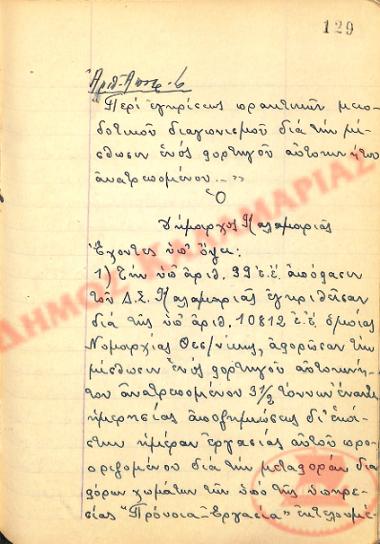 129
Ἀριθ. Ἀποφ. 6
"Περί ἐγκρίσεως πρακτικῶν μειο-
δοτικοῦ διαγωνισμοῦ διά τήν μί-
σθωσιν ἑνός φορτηγοῦ αὐτοκινήτου
ἀνατρεπομένου..."
Ὁ
Δήμαρχος Καλαμαριᾶς
Ἔχοντες ὑπ' ὄψει:
1) Τήν ὑπ' ἀριθ. 99 ἐ.ἔ. ἀπόφασιν
τοῦ Δ.Σ. Καλαμαριᾶς ἐγκριθεῖσαν
διά τῆς ὑπ' ἀριθ. 10812 ἐ.ἔ. ὁμοίας
Νομαρχίας Θεσ/νίκης, ἀφορῶσαν τήν
μίσθωσιν ἑνός φορτηγοῦ αὐτοκινή-
του ἀνατρεπομένου 3½ τόννων ἔναντι
ἡμερησίας ἀποζημιώσεως δι' ἑκά-
στην ἡμέραν ἐργασίας αὐτοῦ προ-
οριζομένου διά τήν μεταφοράν δια-
φόρων χωμάτων τῶν ὑπό τῆς ὑπηρε-
σίας "Πρόνοια-Ἐργασία" ἐκτελουμέ-
ΔΗΜΟΣ ΚΑΛΑΜΑΡΙΑΣ